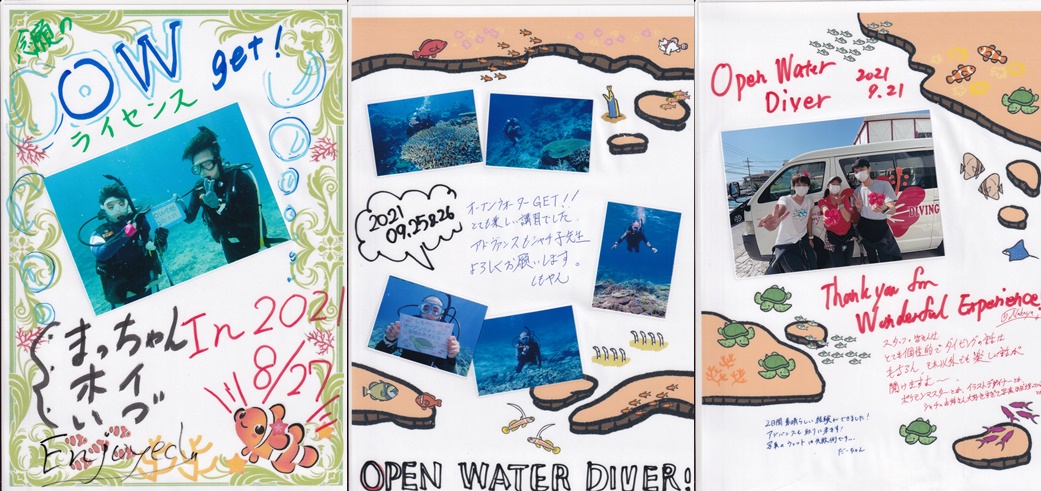 念願の
OW get!
ライセンス
まっちゃん
ホイ
いづ
In 2021
8/27
Enjoyed
2021
09.25&26
オープンウォーターGET!!
とても楽しい講習でした。
アドヴァンスもシャチ子先生
よろしくお願いします。
OPEN WATER DIVER!
Open Water
Diver
2021
9.21
DIVING
Thank you for
Wonderful Experience
スタッフの皆さんは
とても個性的で ダイビングの話は
もちろん、それ以外にも楽しい話が
聞けますよ〜
2日間素晴らしい経験ができました!
アドバンスも取りに来ます!
だーちゃん